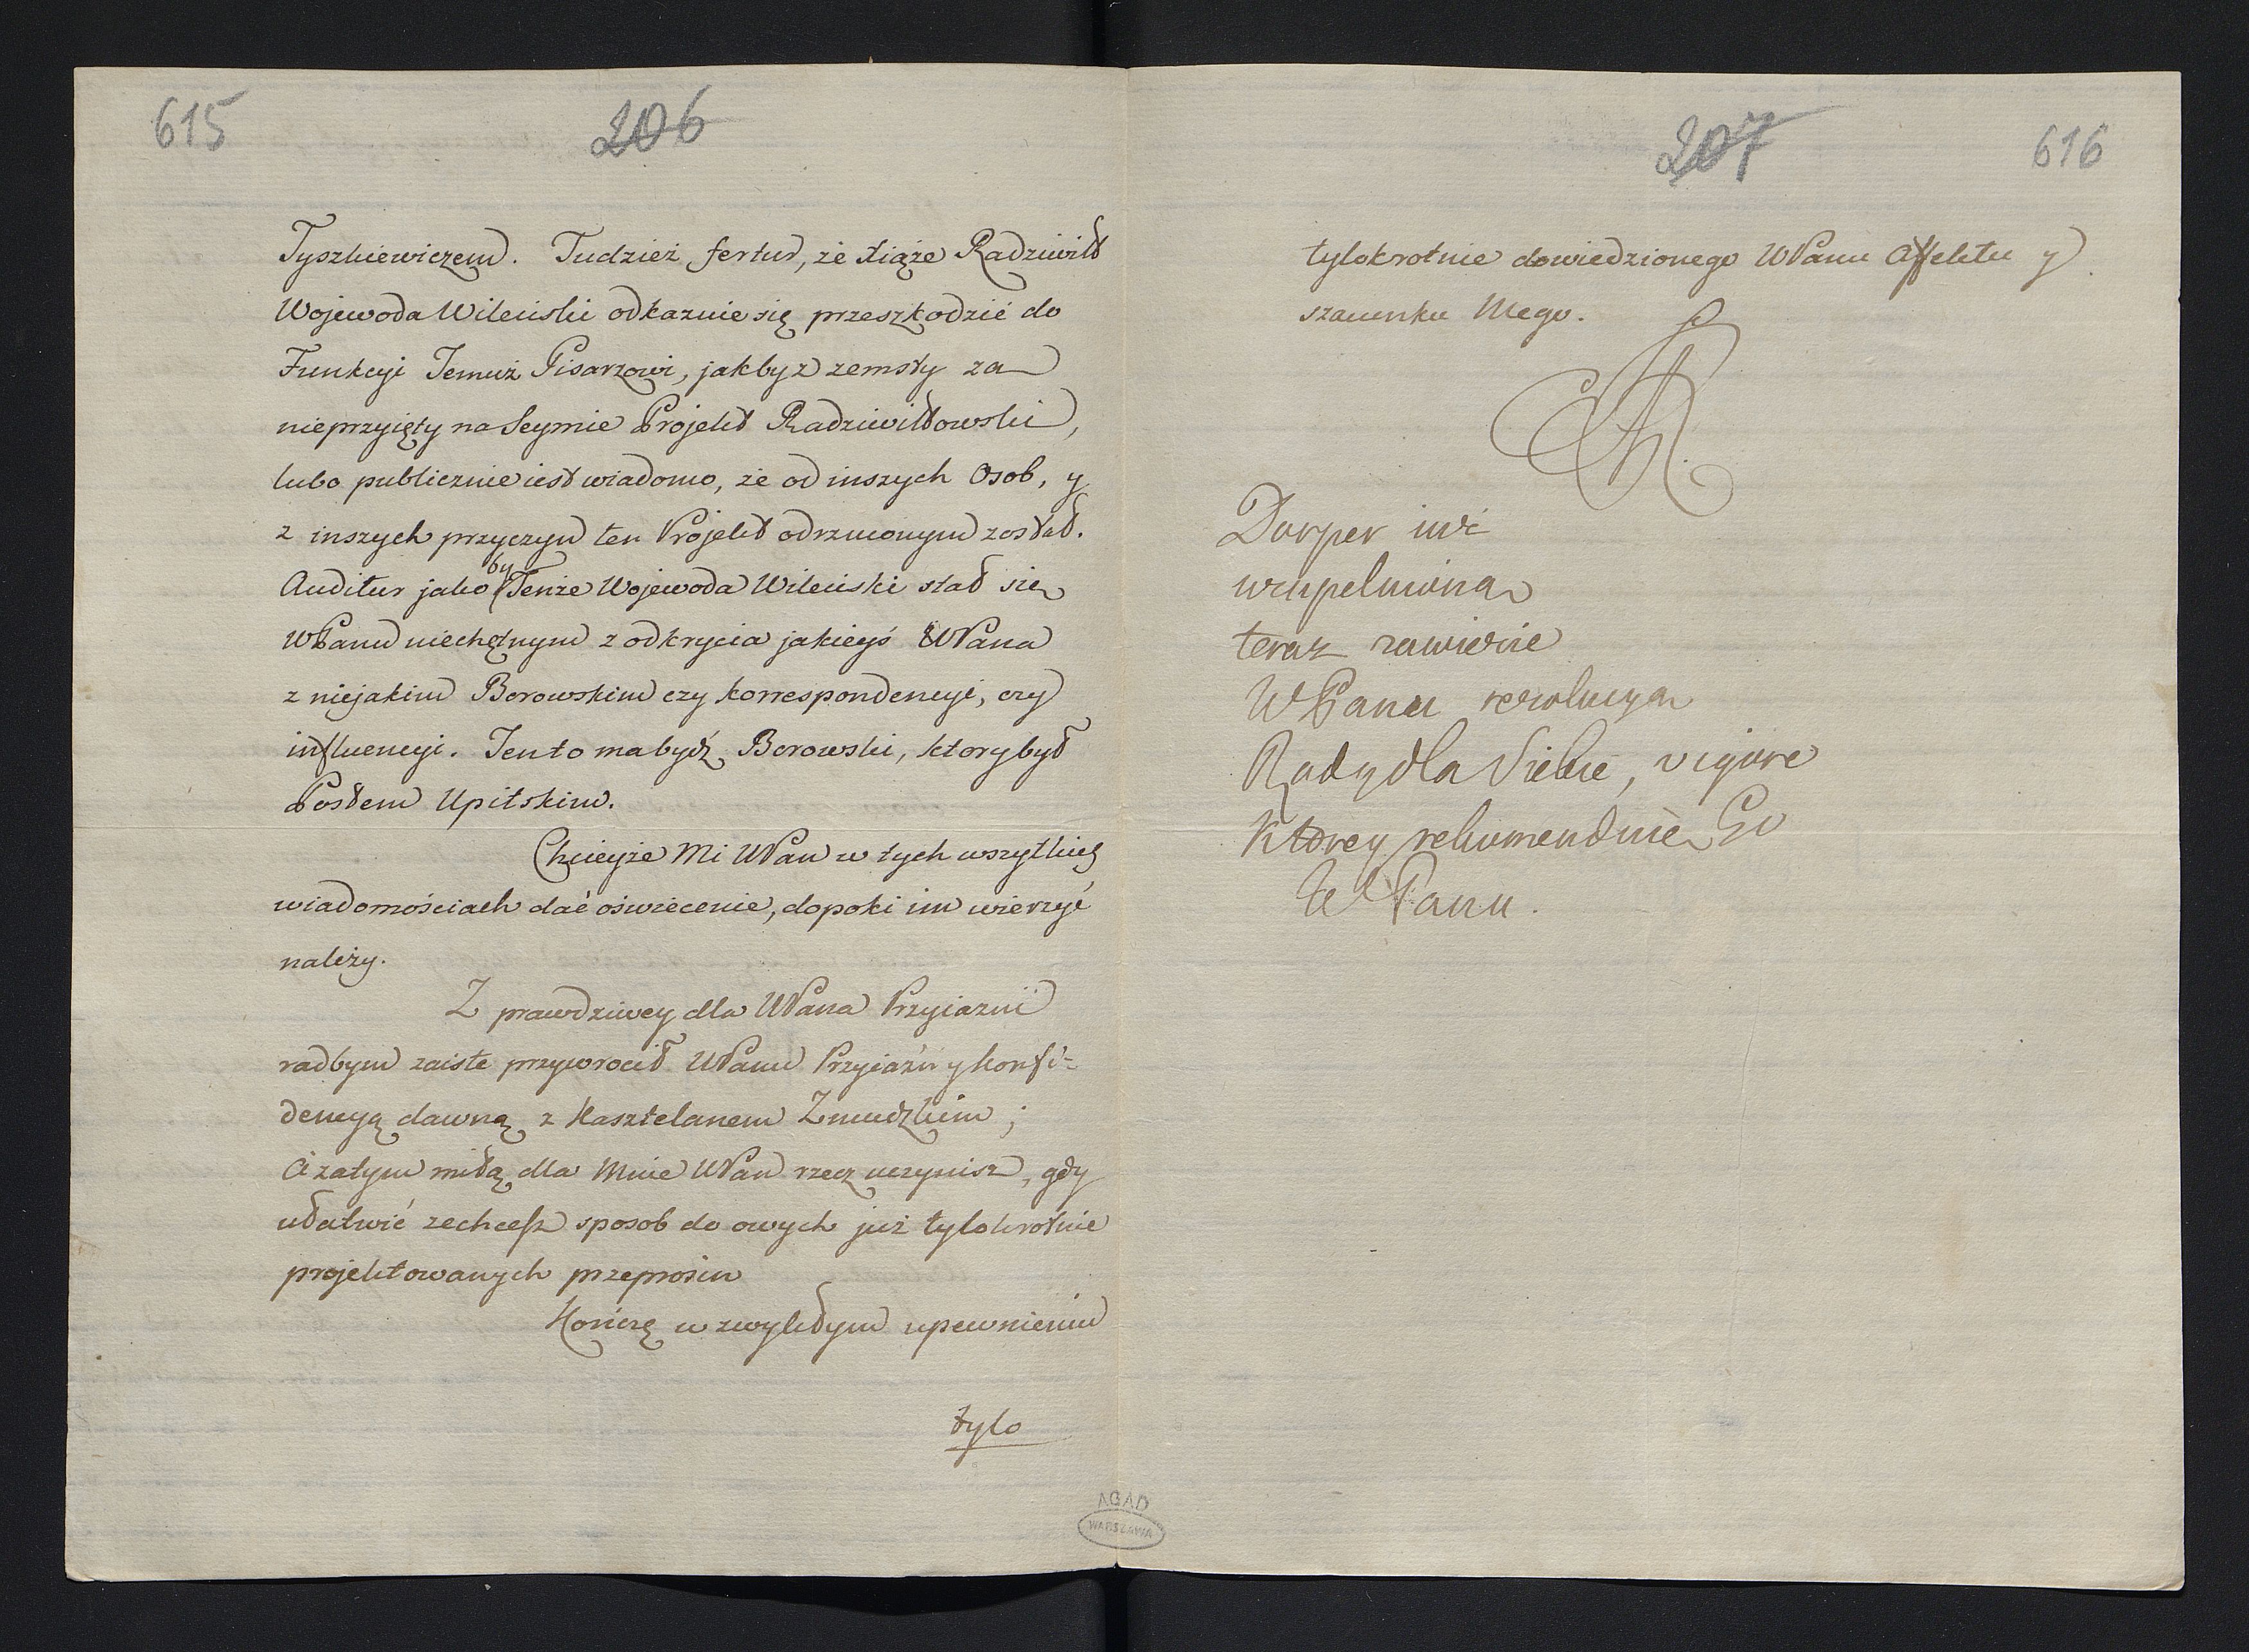 615
206
Tyszkiewiczem. Tudzież fertur, że Xiąże Radziwiłł
Wojewoda Wileński odkazuie się przeszkodzić do
Funkcyi Temuż Pisarzowi, jakby z zemsty za
nieprzyięty na Seymie Projekt Radziwiłłowski,
lubo publicznie iest wiadomo, że od inszych Osob, y
z inszych przyczyn ten Projekt odrzuconym został.
Auditur jakoby Tenże Wojewoda Wileński stał się
WPanu niechętnym z odkrycia jakieyś WPana
z niejakim Borowskim czy korrespondencyi, czy
influencyi. Tento ma bydź Borowski, ktory był
Posłem Upitskim.
Chcieyże Mi WPan w tych wszytkich
wiadomościach dać oświecenie, dopoki im wierzyć
należy.
Z prawdziwey dla WPana Przyiazni
radbym zaiste przywrocił WPanu Przyiaźń y konfi-
dencyą dawną z Kasztelanem Zmudzkim;
A zatym miłą dla Mnie WPan rzecz uczynisz, gdy
ułatwić zechcesz sposob do owych już tylokrotnie
projektowanych przeprosin
Kończę w zwykłym upewnieniu
tylo
AGAD
WARSZAWA
207
616
tylokrotnie dowiedzionego WPanu Affektu y
szacunku Mego.
SAR.
Dorper iuż
uzupełniona
teraz zawiezie
WPanu rezolucya
Rady dla Siebie, vigore
Ktorey rekomenduie Go
WPanu.